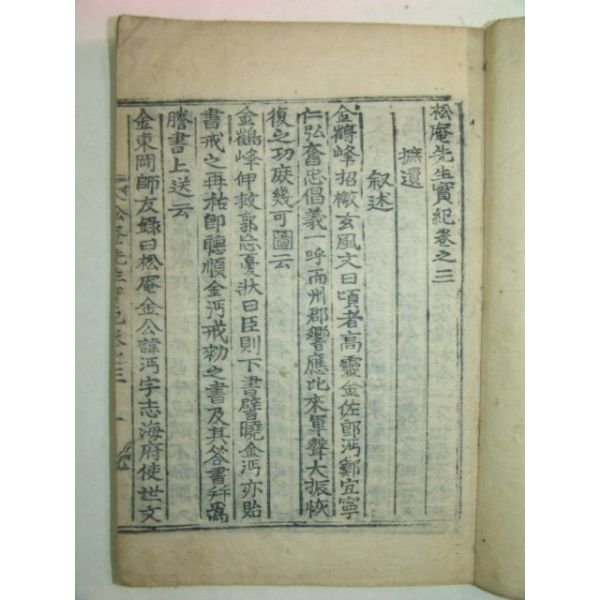 松庵先生實紀卷之三
摭遺
叙述
金鶴峰招檄玄風文曰頃者高靈金佐郎沔鄭宜寧
仁弘奮忠倡義一呼而州郡響應比來軍聲大振恢
復之功庶幾可圖云
金鶴峰伸救郭忘憂狀曰臣則下書譬曉金沔亦貽
書戒之再祐卽聽順金沔戒勑之書及其答書幷爲
謄書上送云
金東岡師友錄曰松庵金公諱沔字志海府使世文
松庵先生實紀卷之三